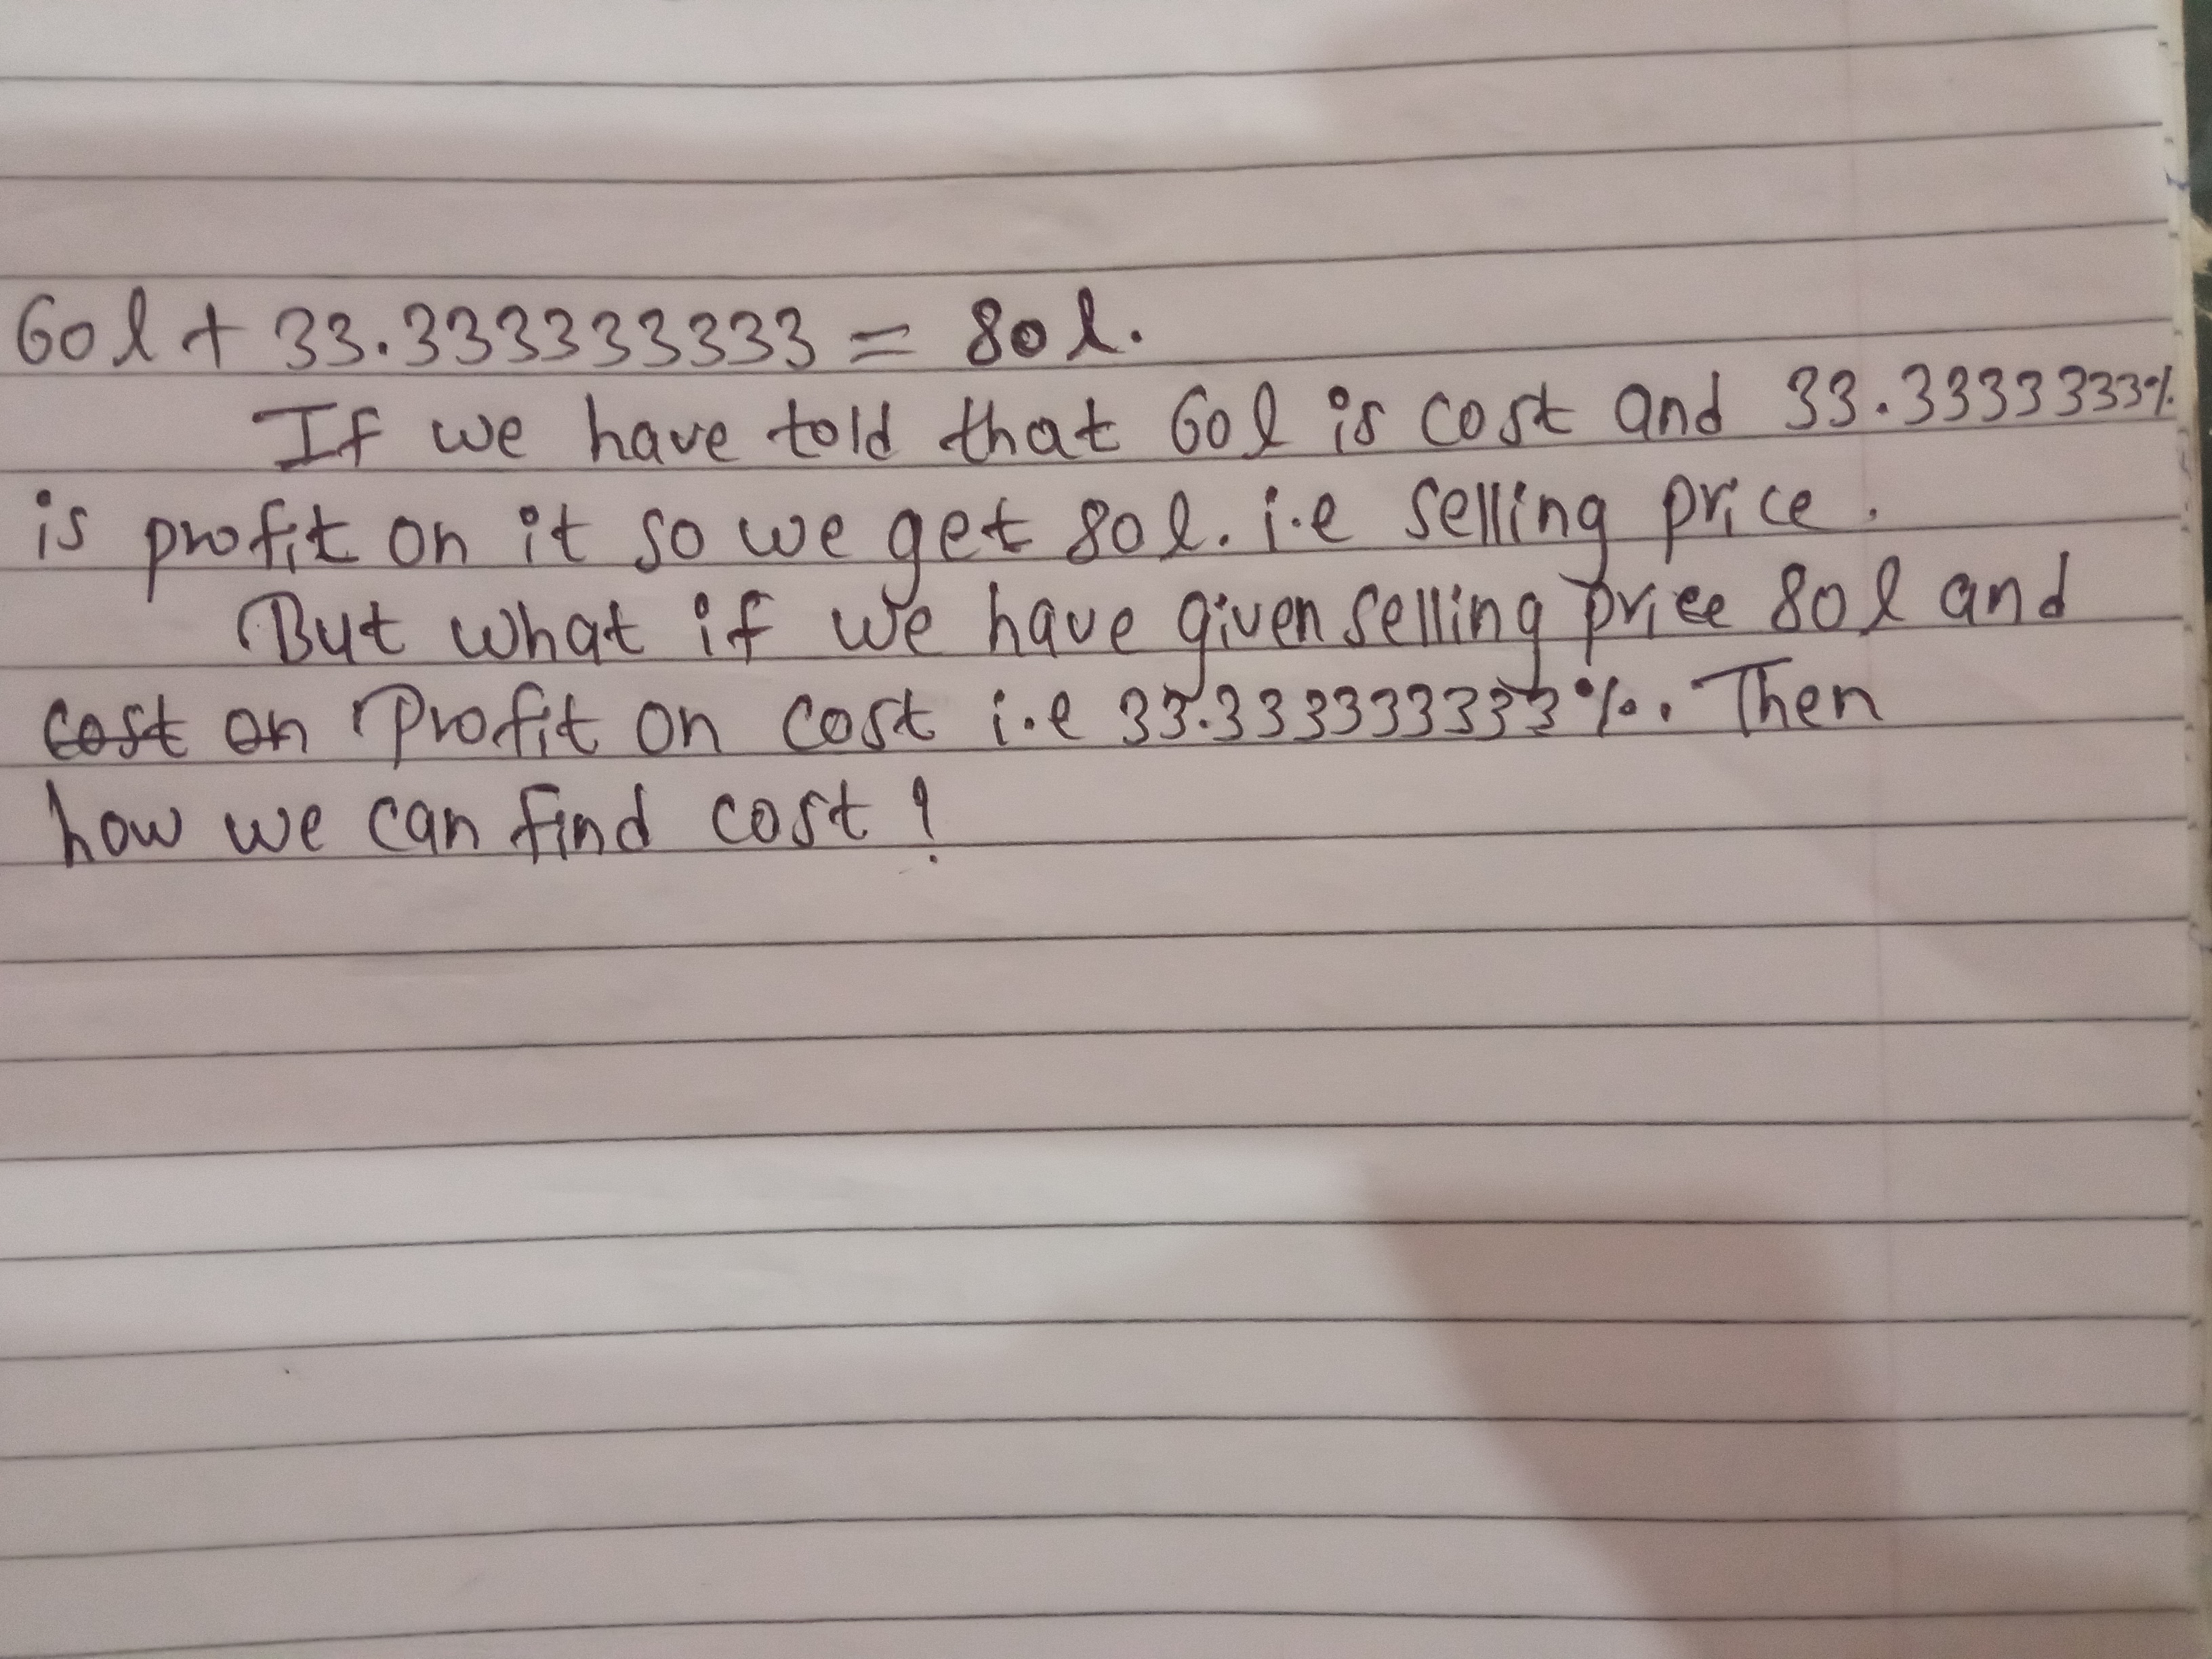 60l + 33.333333333 = 80l.
If we have told that 60l is cost and 33.3333333%
is profit on it so we get 80l. i.e selling price.
But what if we have given selling price 80l and
cost on Profit on cost i.e 33.333333333%. Then
how we can find cost?